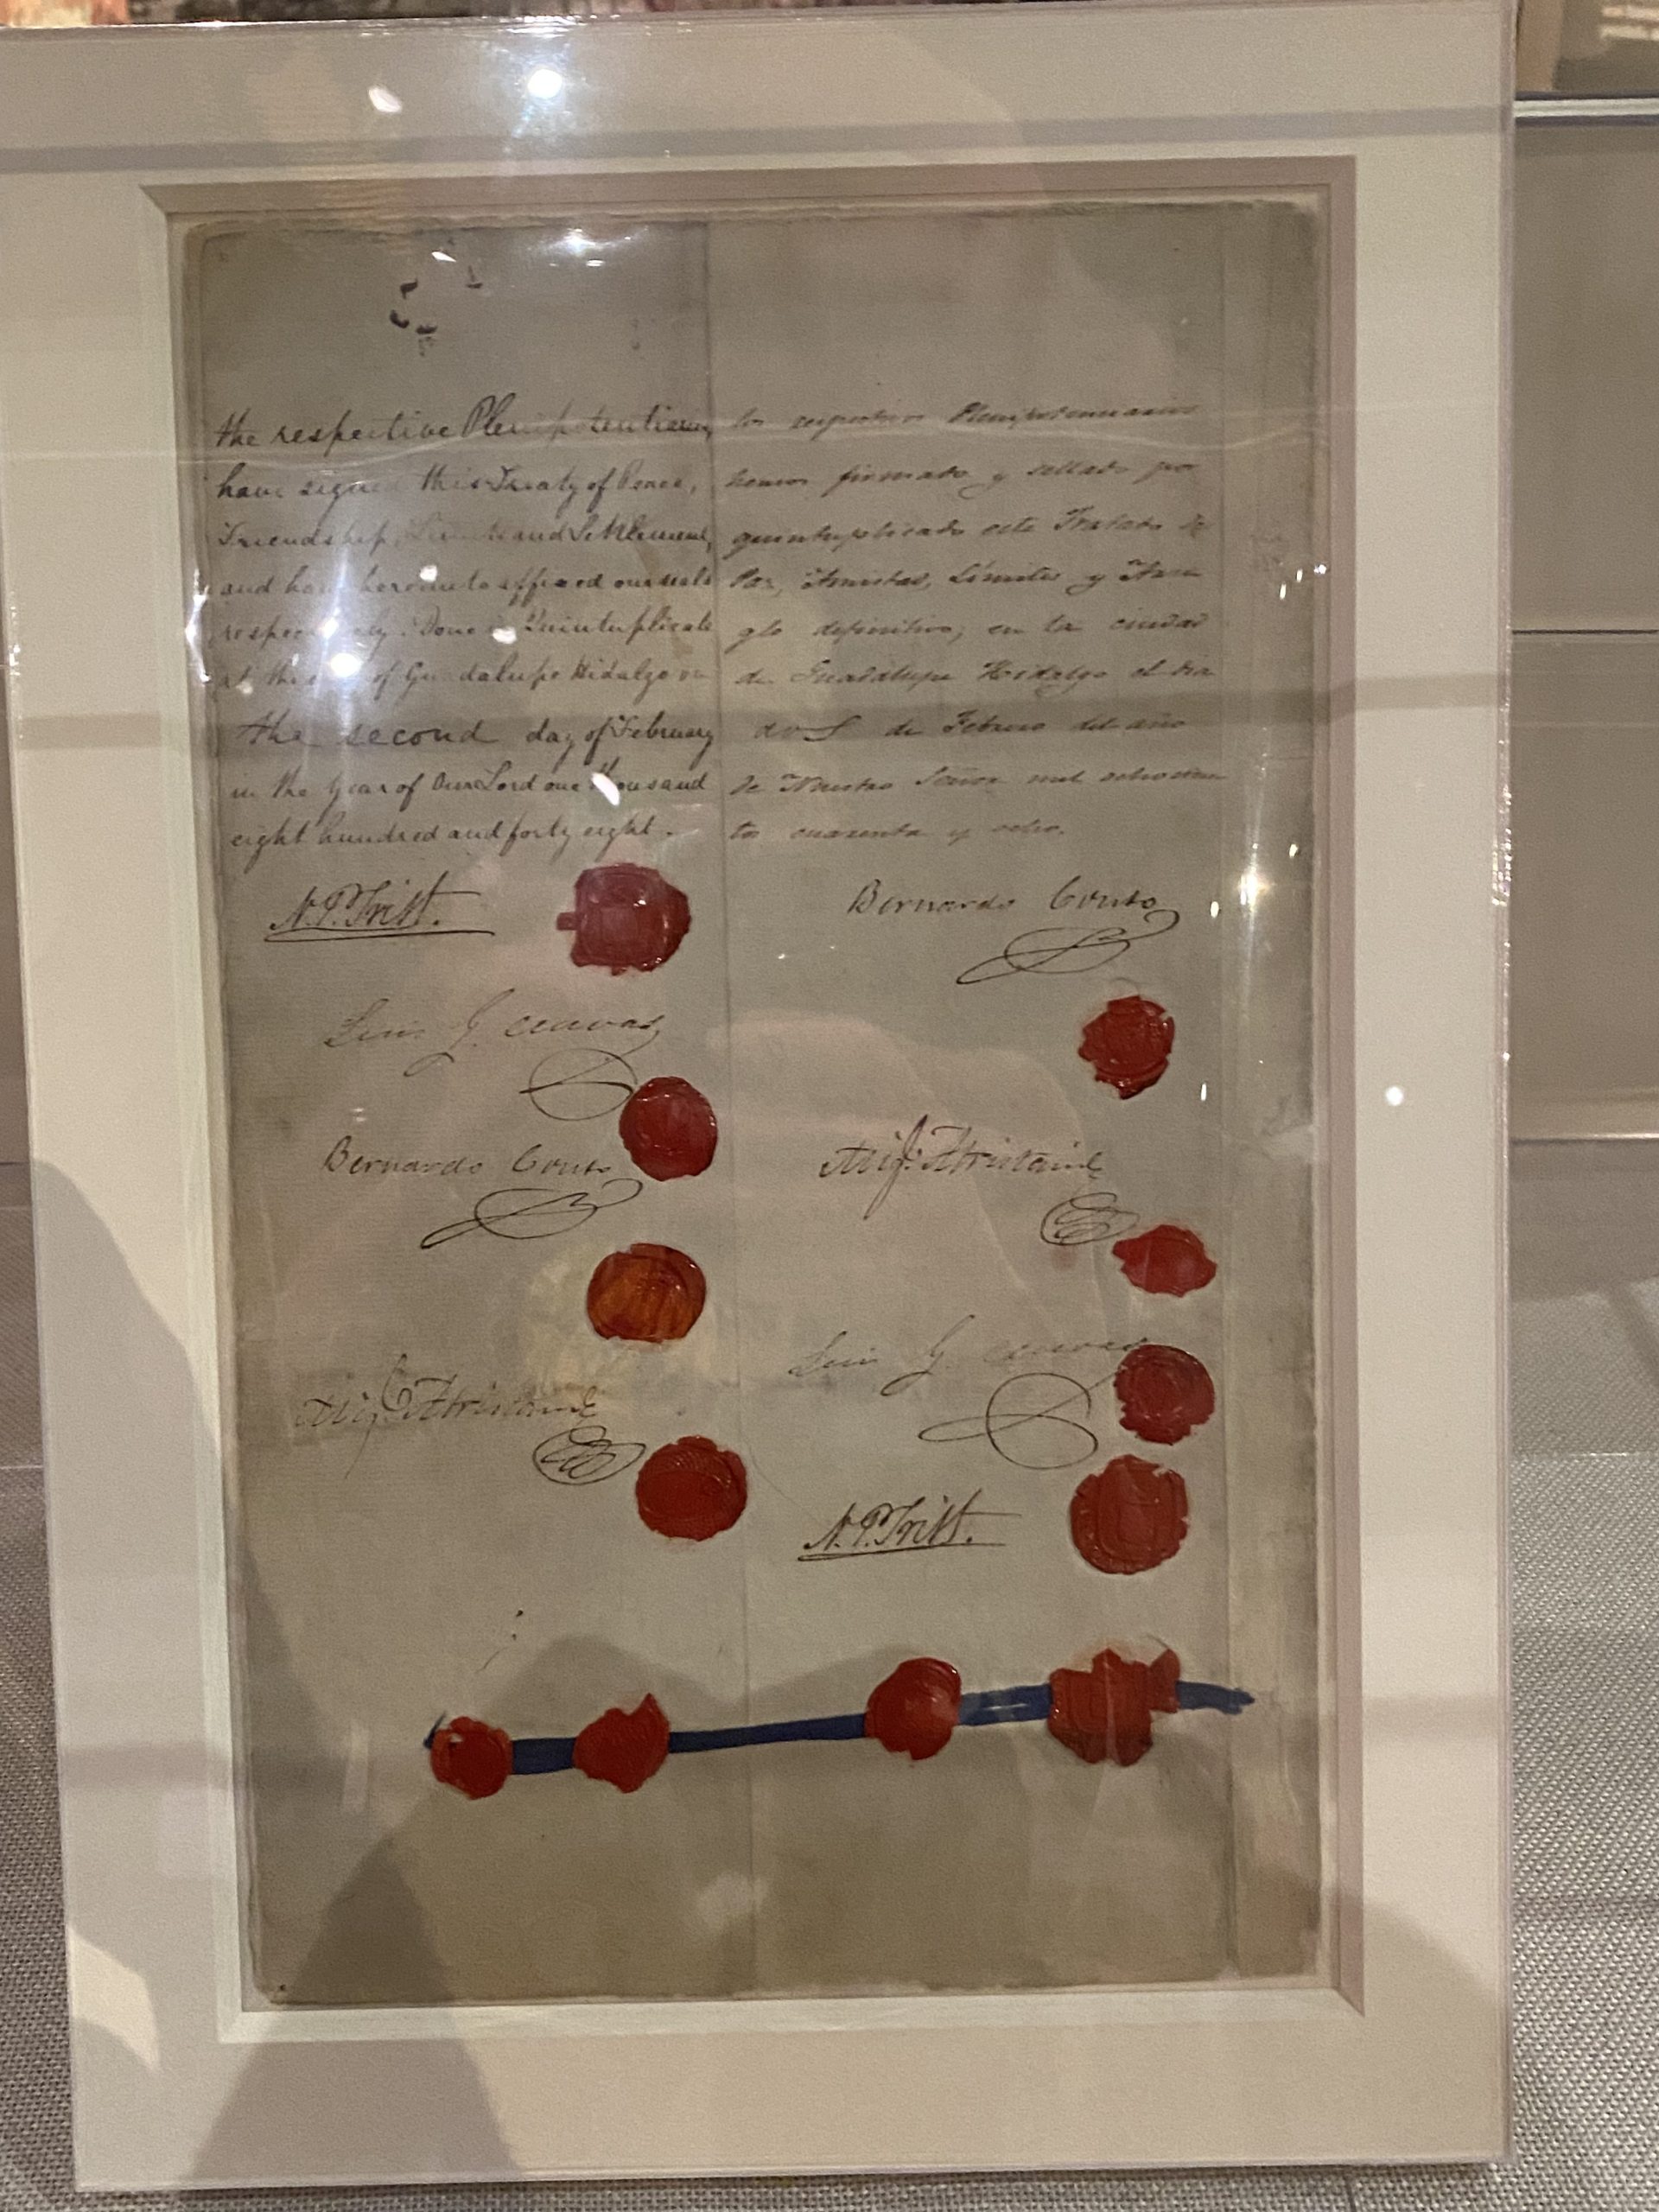 the respective Plenipotentiaries
have signed this Treaty of Peace,
Friendship, Limits and Settlement,
and have hereunto affixed our seals
respectively. Done in Quintuplicate
at the of Guadalupe Hidalgo on
the second day of February
in the year of Our Lord one thousand
eight hundred and forty eight.
N.P. Trist.
Luis G. Cuevas
Bernardo Couto
Mig. Atristain
los respectivos Plenipotenciarios
hemos firmado y sellado por
quintuplicado este Tratado de
Paz, Amistad, Límites y Arre
glo definitivo, en la ciudad
de Guadalupe Hidalgo el dia
dos de Febrero del año
de Nuestro Señor mil ochocien
tos cuarenta y ocho.
Bernardo Couto
Mig. Atristain
Luis G. Cuevas
N.P. Trist.